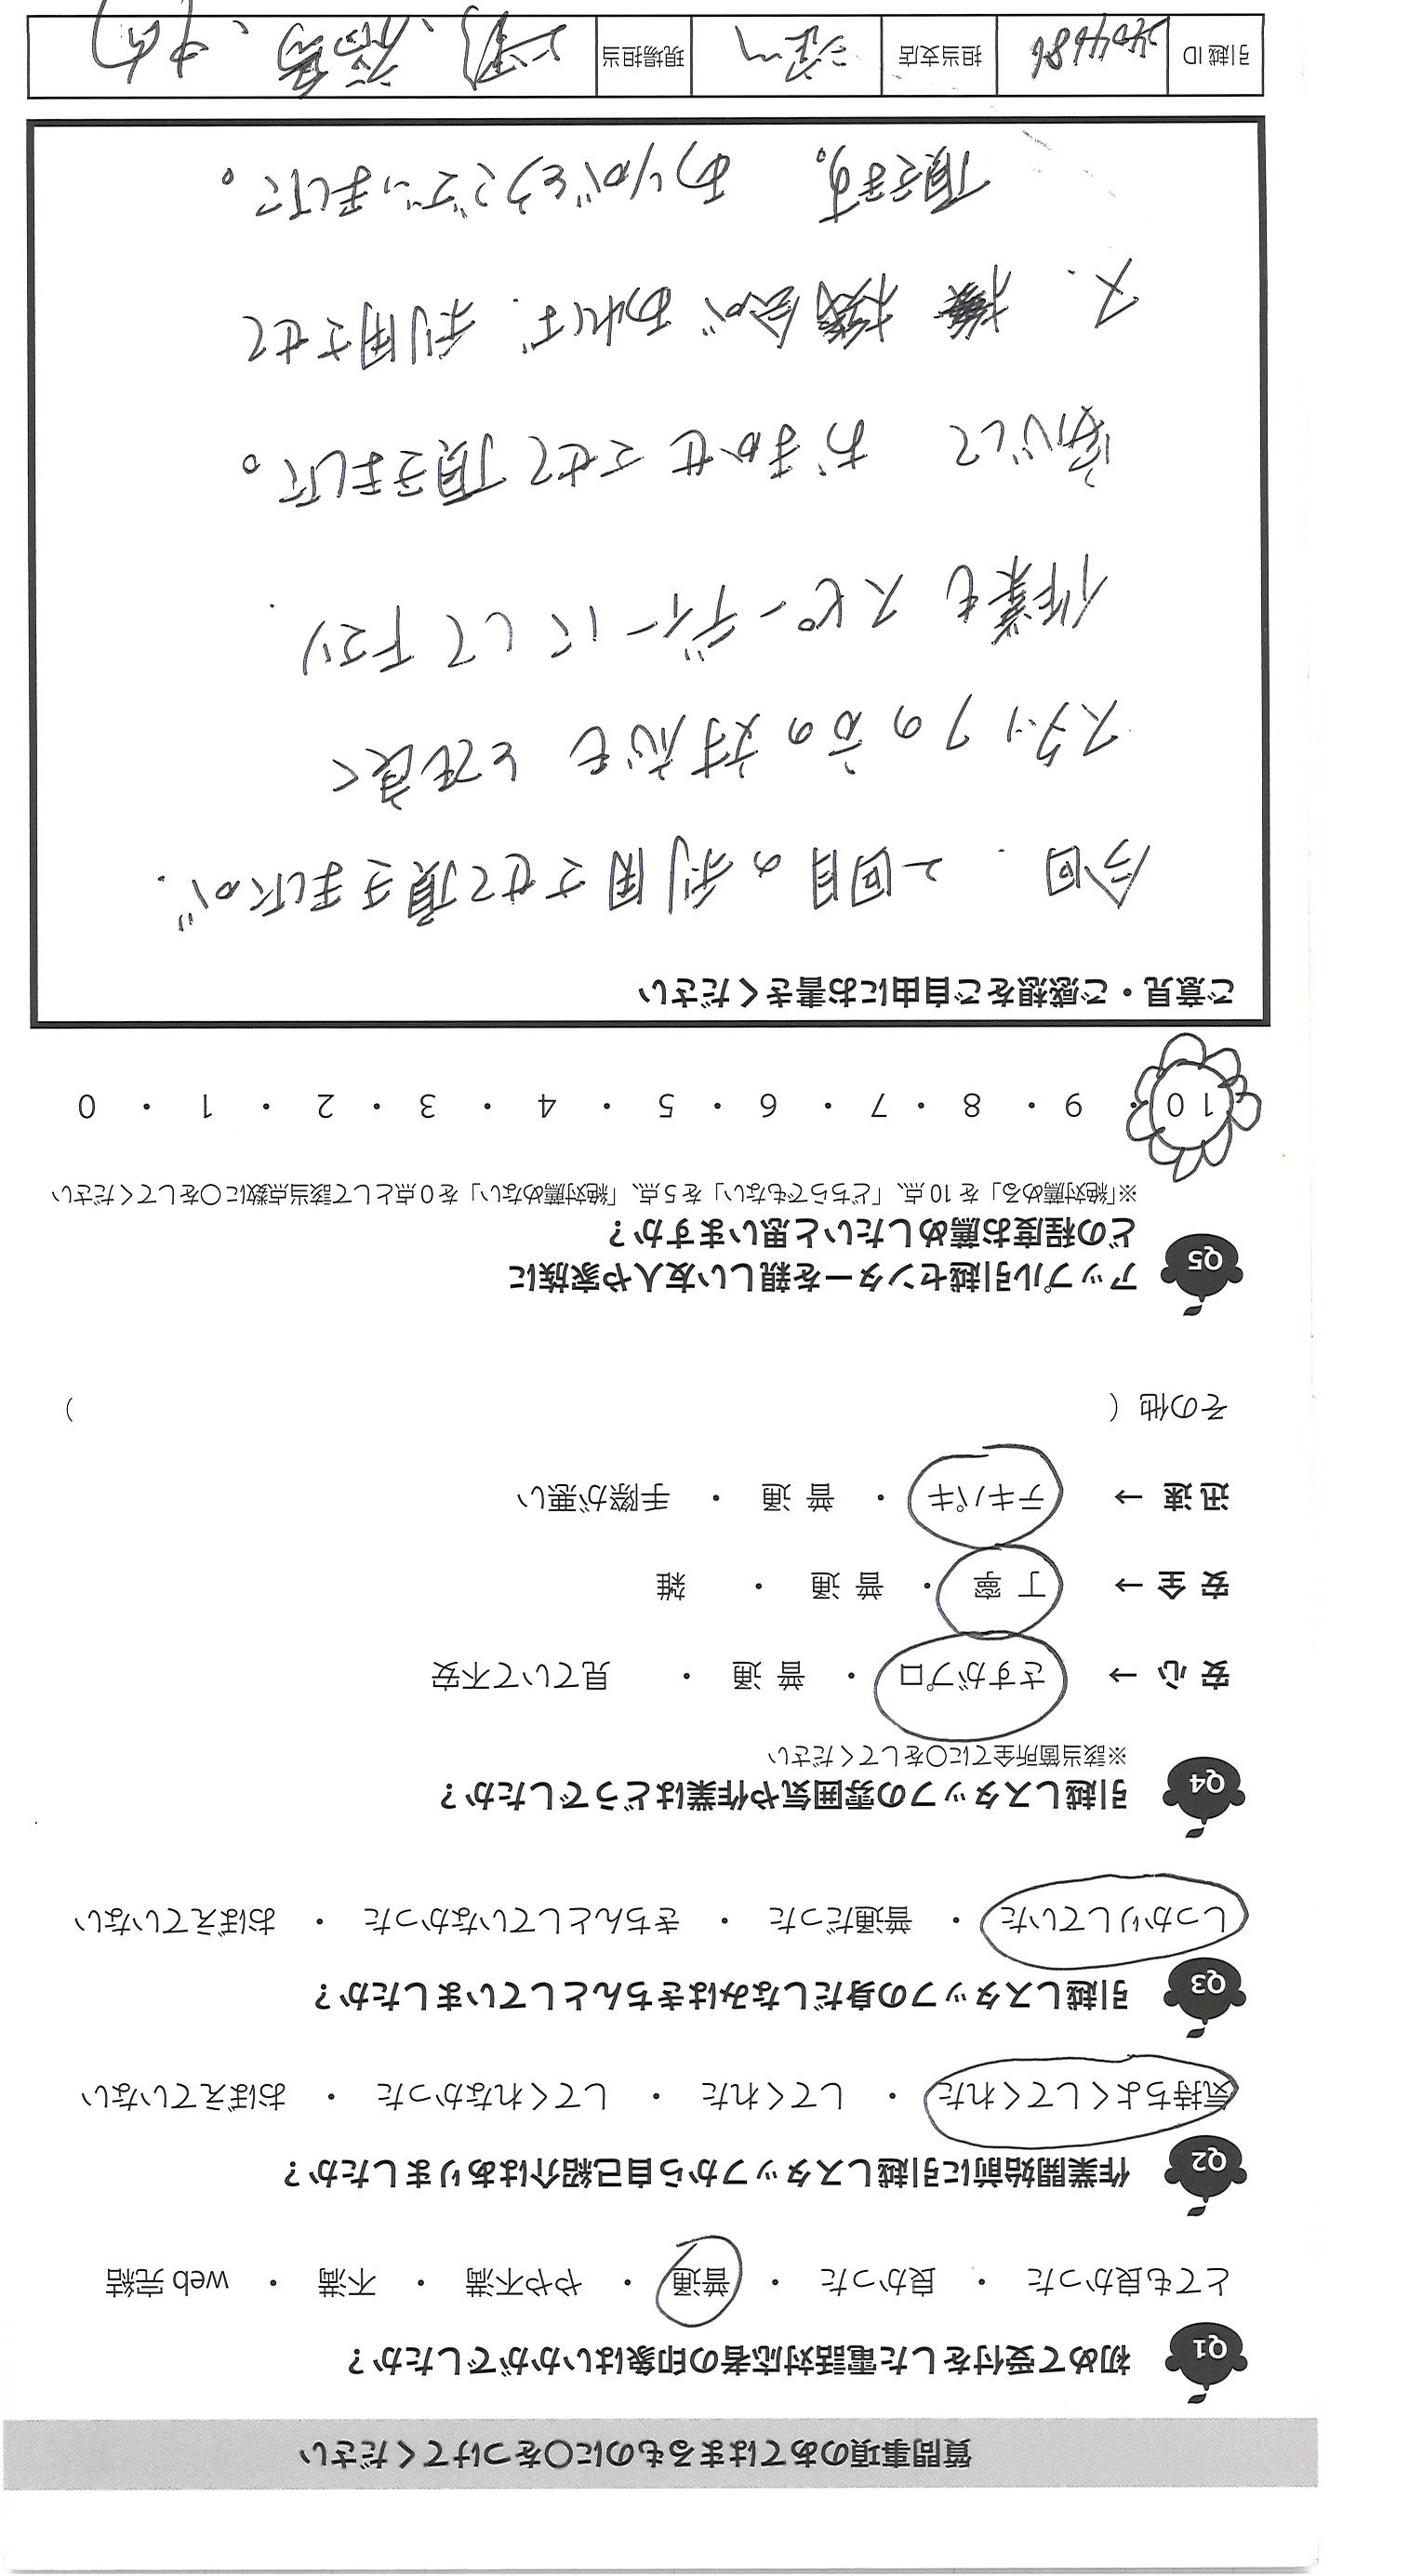 質問事項のあてはまるものに〇をつけてください
Q1 初めて受付をした電話対応者の印象はいかがでしたか？
とても良かった ・ 良かった ・ 普通 ・ やや不満 ・ 不満 ・ web 完結
Q2 作業開始前に引越しスタッフから自己紹介はありましたか？
気持ちよくしてくれた ・ してくれた ・ してくれなかった ・ おぼえていない
Q3 引越しスタッフの身だしなみはきちんとしていましたか？
しっかりしていた ・ 普通だった ・ きちんとしていなかった ・ おぼえていない
Q4 引越しスタッフの雰囲気や作業はどうでしたか？
※該当箇所全てに〇をしてください
安心 → さすがプロ ・ 普通 ・ 見ていて不安
安全 → 丁寧 ・ 普通 ・ 雑
迅速 → テキパキ ・ 普通 ・ 手際が悪い
その他（ ）
Q5 アップル引越センターを親しい友人や家族に
どの程度お薦めしたいと思いますか？
※「絶対薦める」を 10 点、「どちらでもない」を 5 点、「絶対薦めない」を 0 点として該当点数に〇をしてください
10 ・ 9 ・ 8 ・ 7 ・ 6 ・ 5 ・ 4 ・ 3 ・ 2 ・ 1 ・ 0
ご意見・ご感想をご自由にお書きください
今回、2回目の利用させて頂きましたが、
スタッフの方の対応もとても良く
作業もスピーディーにして下さり、
安心して おまかせさせて頂きました。
又、機会があれば、利用させて
頂きます。 ありがとうございました。
引越 ID 担当支店 現場担当